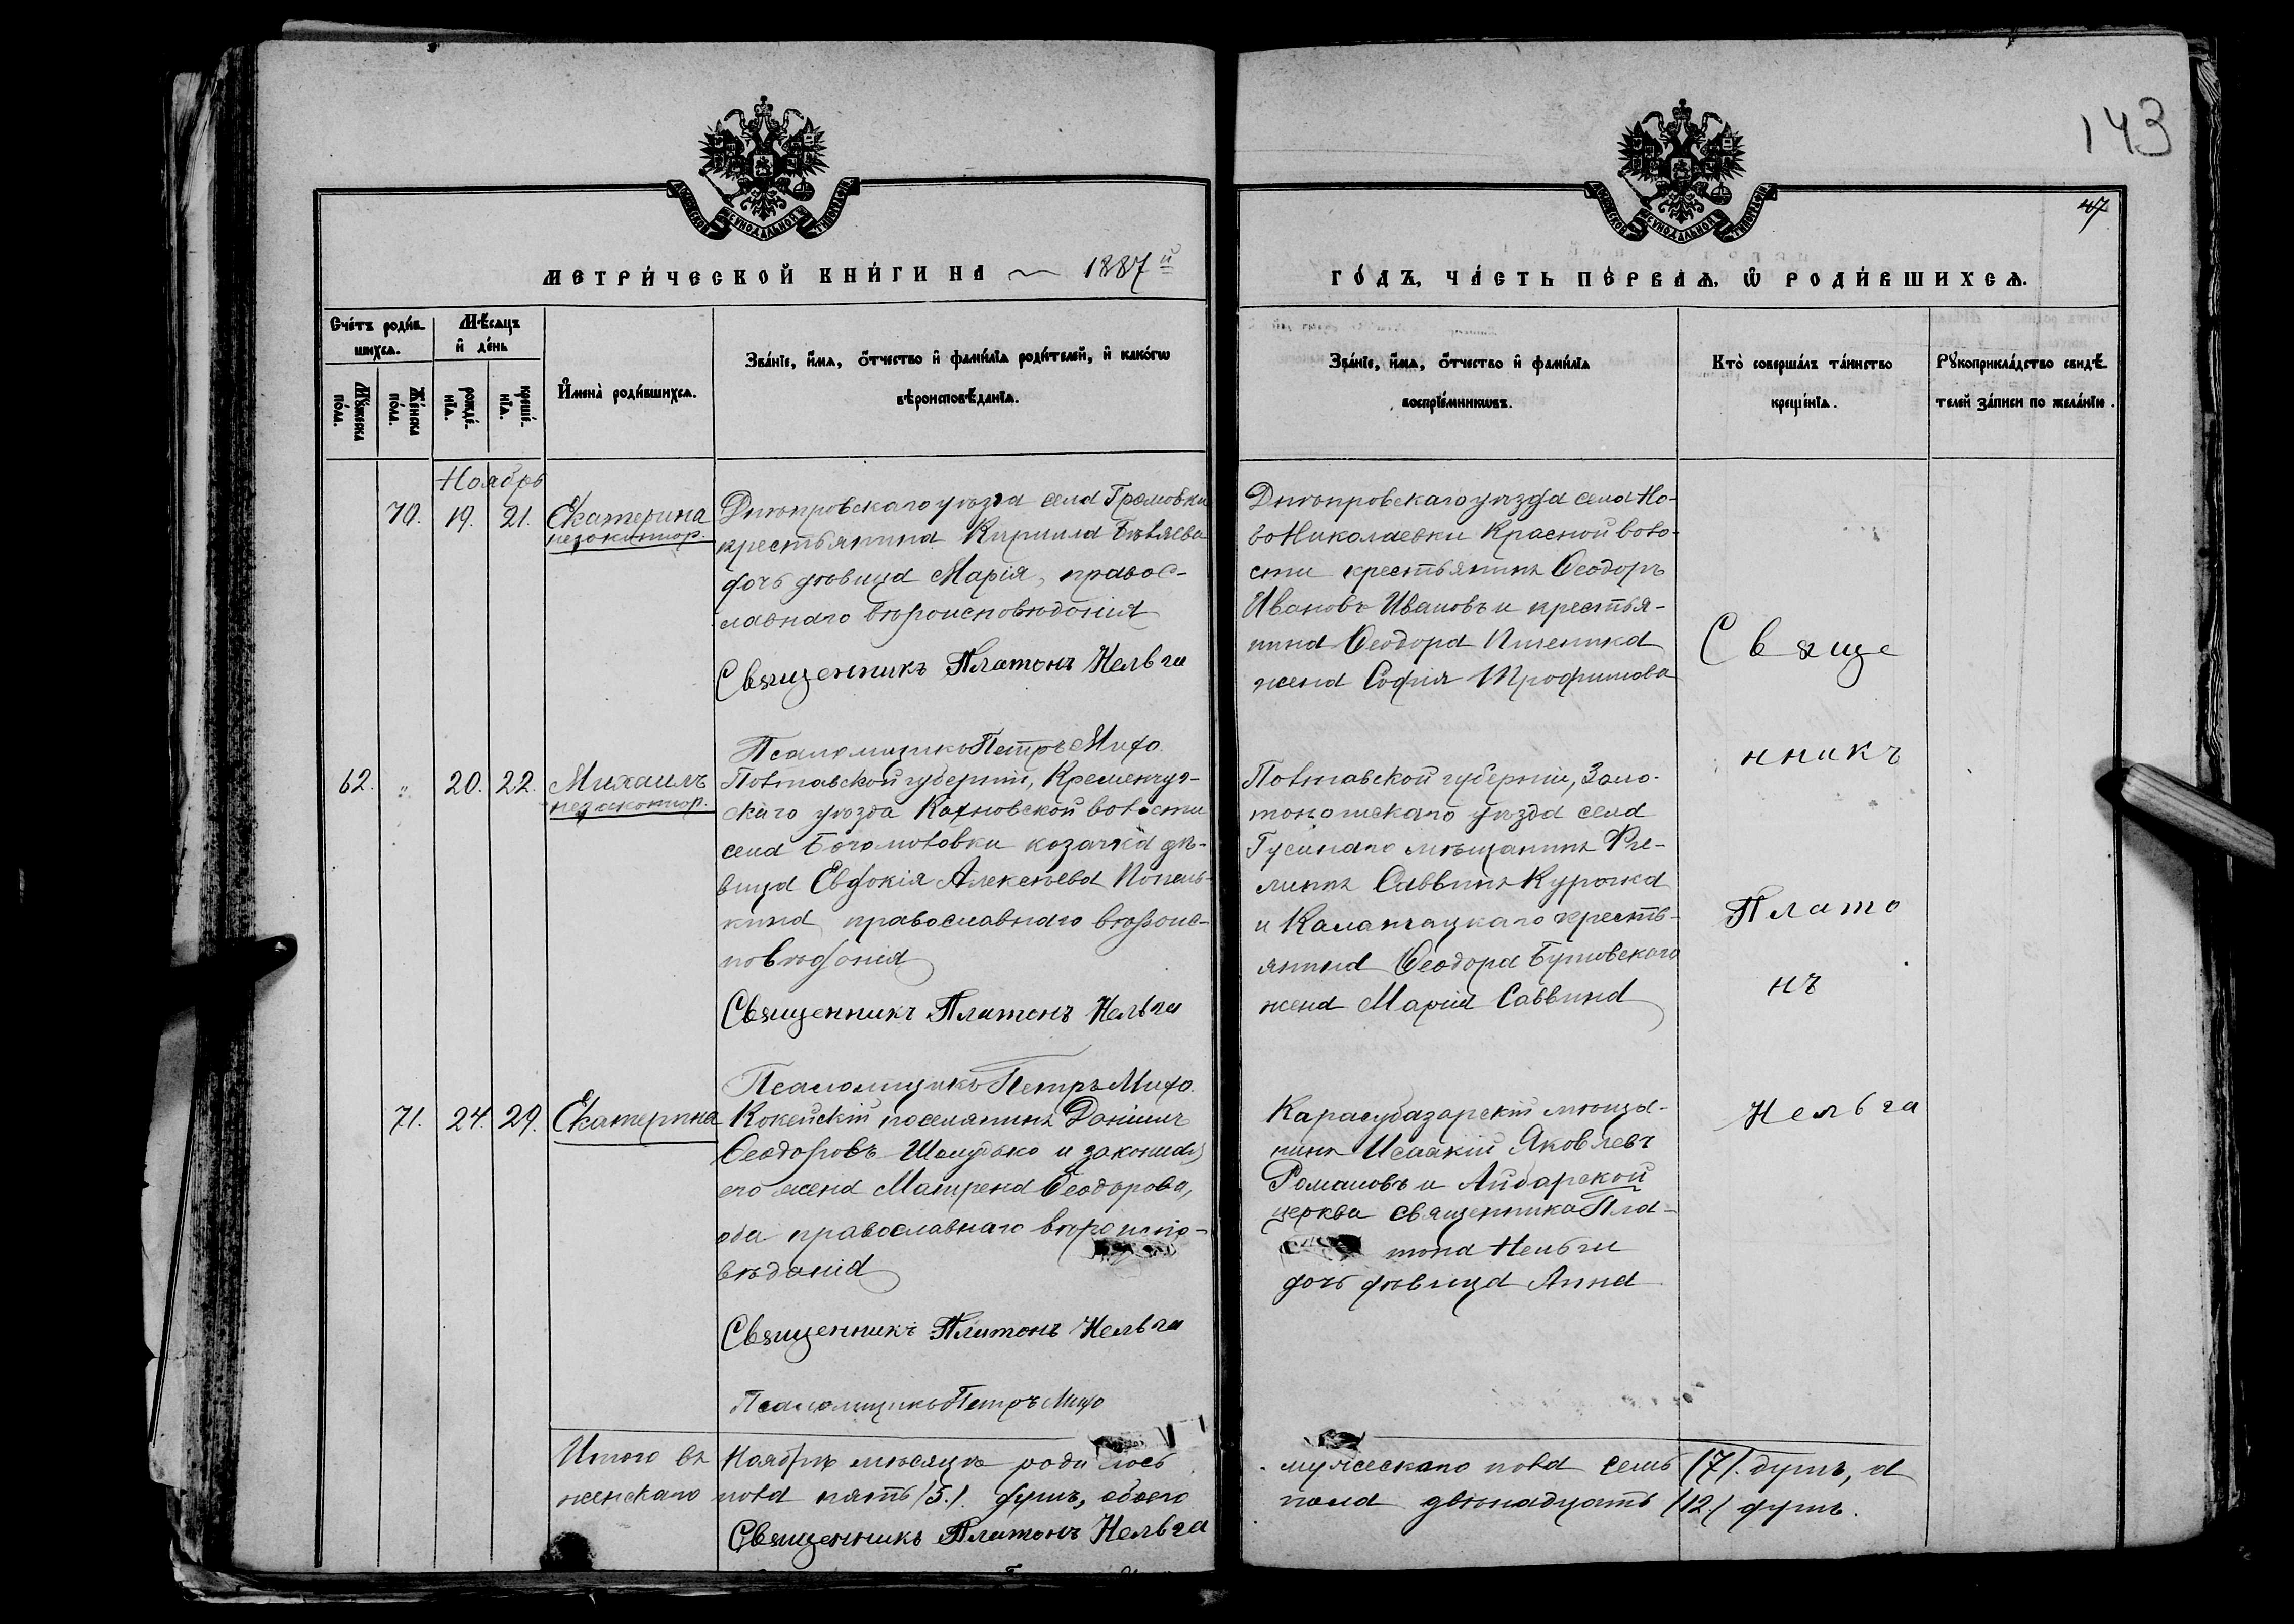 143
47
МЕТРИ́ЧЕСКОЙ КНИ́ГИ НА 1887й
ГО́ДЪ, ЧА́СТЬ ПЕ́РВАѦ, Ѡ҆ РОДИ́ВШИХСѦ.
Сче́тъ роди́в-
шихсѧ.
Мꙋ́жеска по́ла.
Же́нска по́ла.
Мѣ́сѧцъ
и҆ де́нь
рожде́-
нїѧ.
креще́-
нїѧ.
И҆мена̀ роди́вшихсѧ.
Зва́нїе, и҆́мѧ, ѻ҆́тчество и҆ фами́лїѧ роди́телей, и҆ како́гѡ
вѣроисповѣ́данїѧ.
Зва́нїе, и҆́мѧ, ѻ҆́тчество и҆ фами́лїѧ
воспрїе́мникѡвъ.
Кто̀ соверша́лъ та́инство
креще́нїѧ.
Рꙋкоприкла́дство свидѣ́-
телей за́писи по жела́нїю.
Ноябрь
70. 19. 21. Екатерина
незаконнор.
Днѣпровскаго уѣзда села Громовки
крестьянина Кирилла Бѣляева
дочь дѣвица Марія, правос-
лавнаго вѣроисповѣданія
Священникъ Платонъ Нельга
Псаломщикъ Петръ Михо
Днѣпровскаго уѣзда села Но-
воНиколаевки Красной воло-
сти крестьянинъ Ѳеодоръ
Ивановъ Ивановъ и крестья-
нина Ѳеодора Пшеника
жена Софія Трофимова
62. " 20. 22. Михаилъ
незаконнор.
Полтавской губерніи, Кременчуг-
скаго уѣзда Кахновской волости
села Богомоловки козачка дѣ-
вица Евдокія Алексѣева Попель-
кина православнаго вѣроис-
повѣданія
Священникъ Платонъ Нельга
Псаломщикъ Петръ Михо
Полтавской губерніи, Золо-
тоношскаго уѣзда села
Гусинаго мѣщанинъ Фи-
липпъ Саввинъ Курочка
и Каланчацкаго кресть-
янина Ѳеодора Бутовскаго
жена Марія Саввина
71. 24. 29. Екатерина
Кокейскій поселянинъ Даніилъ
Ѳеодоровъ Шелудько и законная
его жена Матрена Ѳеодорова,
оба православнаго вѣроиспо-
вѣданія
Священникъ Платонъ Нельга
Псаломщикъ Петръ Михо
Карасубазарскій мѣща-
нинъ Исаакій Яковлевъ
Романовъ и Айбарской
церкви священника Пла-
тона Нельги
дочь дѣвица Анна
Свяще
нникъ
Плато
нъ
Нельга
Итого въ Ноябрѣ мѣсяцѣ родилось мужескаго пола семь /7/. душъ, а
женскаго пола пять /5./. душъ, обоего пола двѣнадцать /12./ душъ.
Священникъ Платонъ Нельга